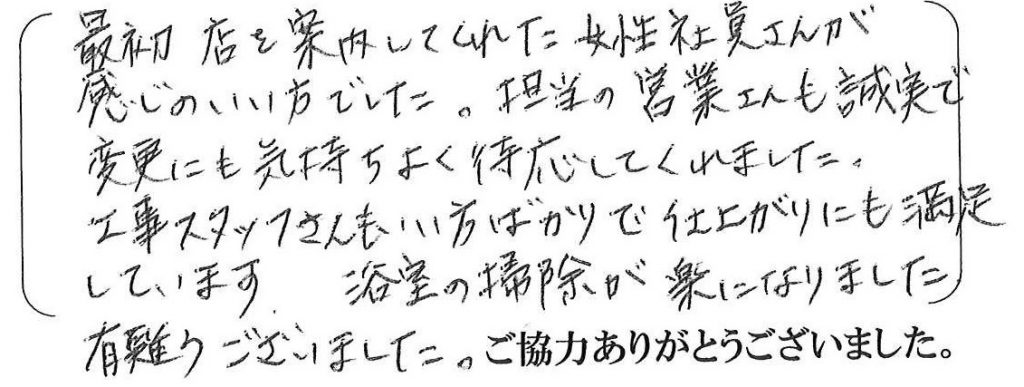 最初 店を案内してくれた女性社員さんが
感じのいい方でした。担当の営業さんも誠実で
変更にも気持ちよく待応してくれました。
工事スタッフさんもいい方ばかりで仕上がりにも満足
しています. 浴室の掃除が楽になりました
有難うございました。ご協力ありがとうございました。